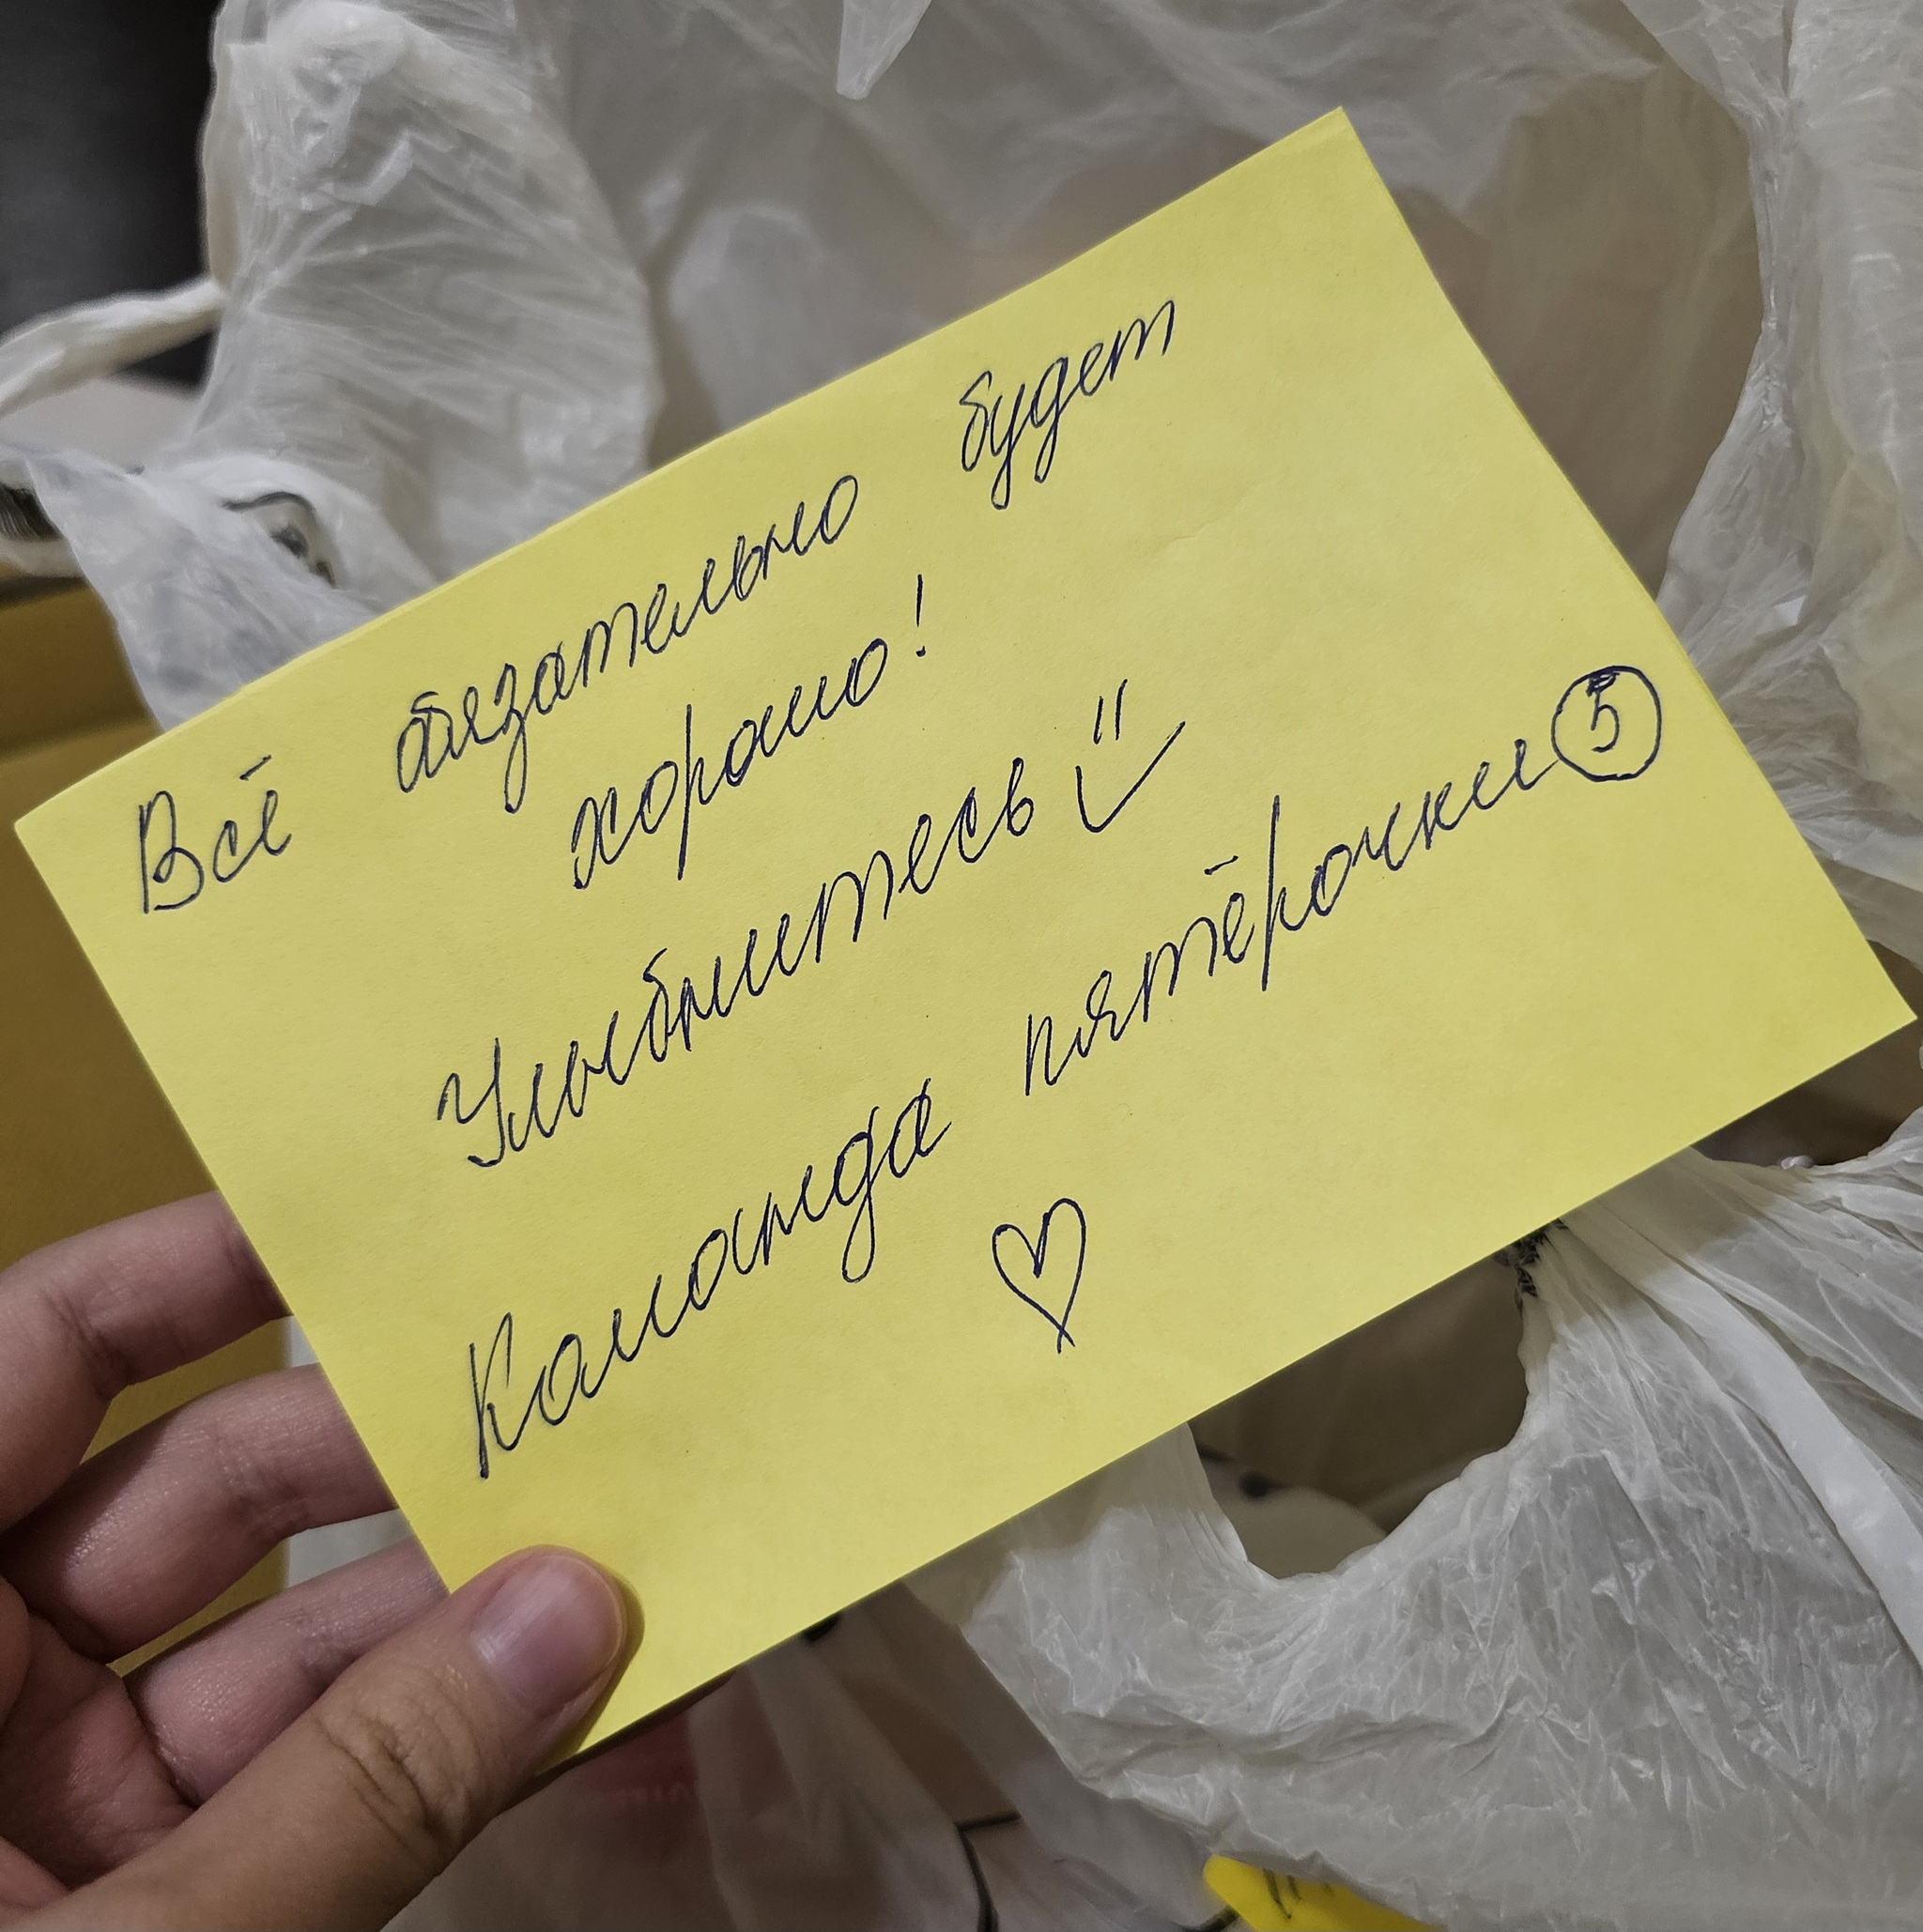 Всё обязательно будет
хорошо!
Улыбнитесь
Команда пятёрочки 5